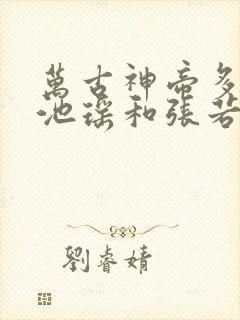 萬古神帝多
池瑤和張若
劉睿婧